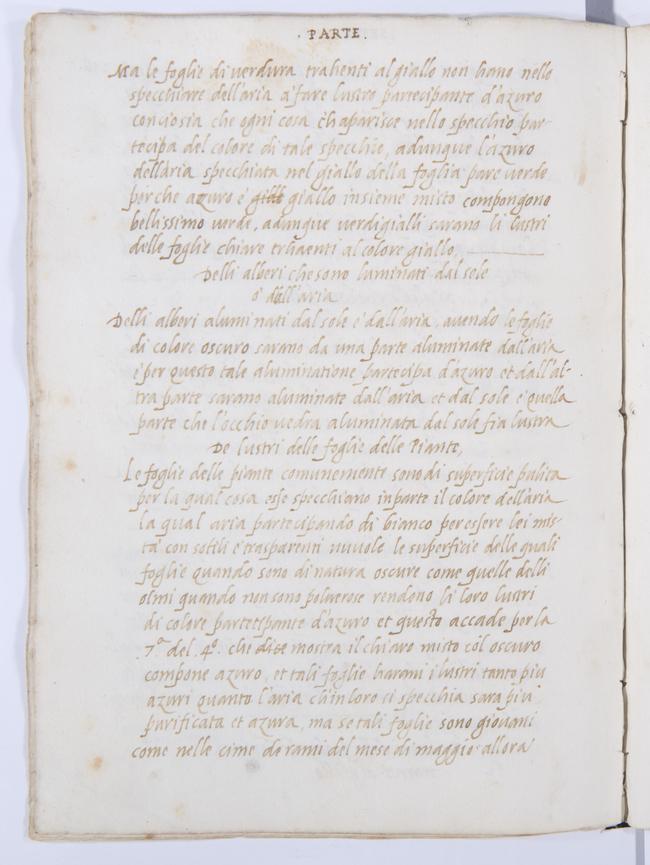 . PARTE .
Ma le foglie di verdura trahenti al giallo non hano nello
specchiare dell'aria a fare lustro partecipante d'azuro
conciosia che ogni cosa ch'aparisce nello specchio par-
tecipa del colore di tale specchio, adunque l'azuro
dell'aria specchiata nel giallo della foglia pare verde
perche azuro e giallo insieme misto compongono
bellissimo verde, adunque verdigialli sarano li lustri
delle foglie chiare trhaenti al colore giallo,
Delli alberi che sono luminati dal sole
e dall'aria
Delli alberi aluminati dal sole e dall'aria, avendo le foglie
di colore oscuro sarano da una parte aluminate dall'aria
e per questo tale aluminatione partecipa d'azuro et dall'al-
tra parte sarano aluminate dall'aria et dal sole e quella
parte che l'occhio vedra aluminata dal sole fia lustra
De lustri delle foglie delle Piante,
Le foglie delle piante comunemente sono di superficie pulita
per la qual cosa esse specchiano in parte il colore dell'aria
la qual aria partecipando di bianco per essere lei mis-
ta con sotili e trasparenti nuvole le superficie delle quali
foglie quando sono di natura oscure come quelle delli
olmi quando non sono polverose rendeno li loro lustri
di colore partecipante d'azuro et questo accade per la
.7.a del .4.o che mostra il chiaro misto col oscuro
compone azuro, et tali foglie harani i lustri tanto piu
azuri quanto l'aria ch'in loro si specchia sara piu
purificata et azura, ma se tali foglie sono giovani
come nelle cime de rami del mese di maggio allora